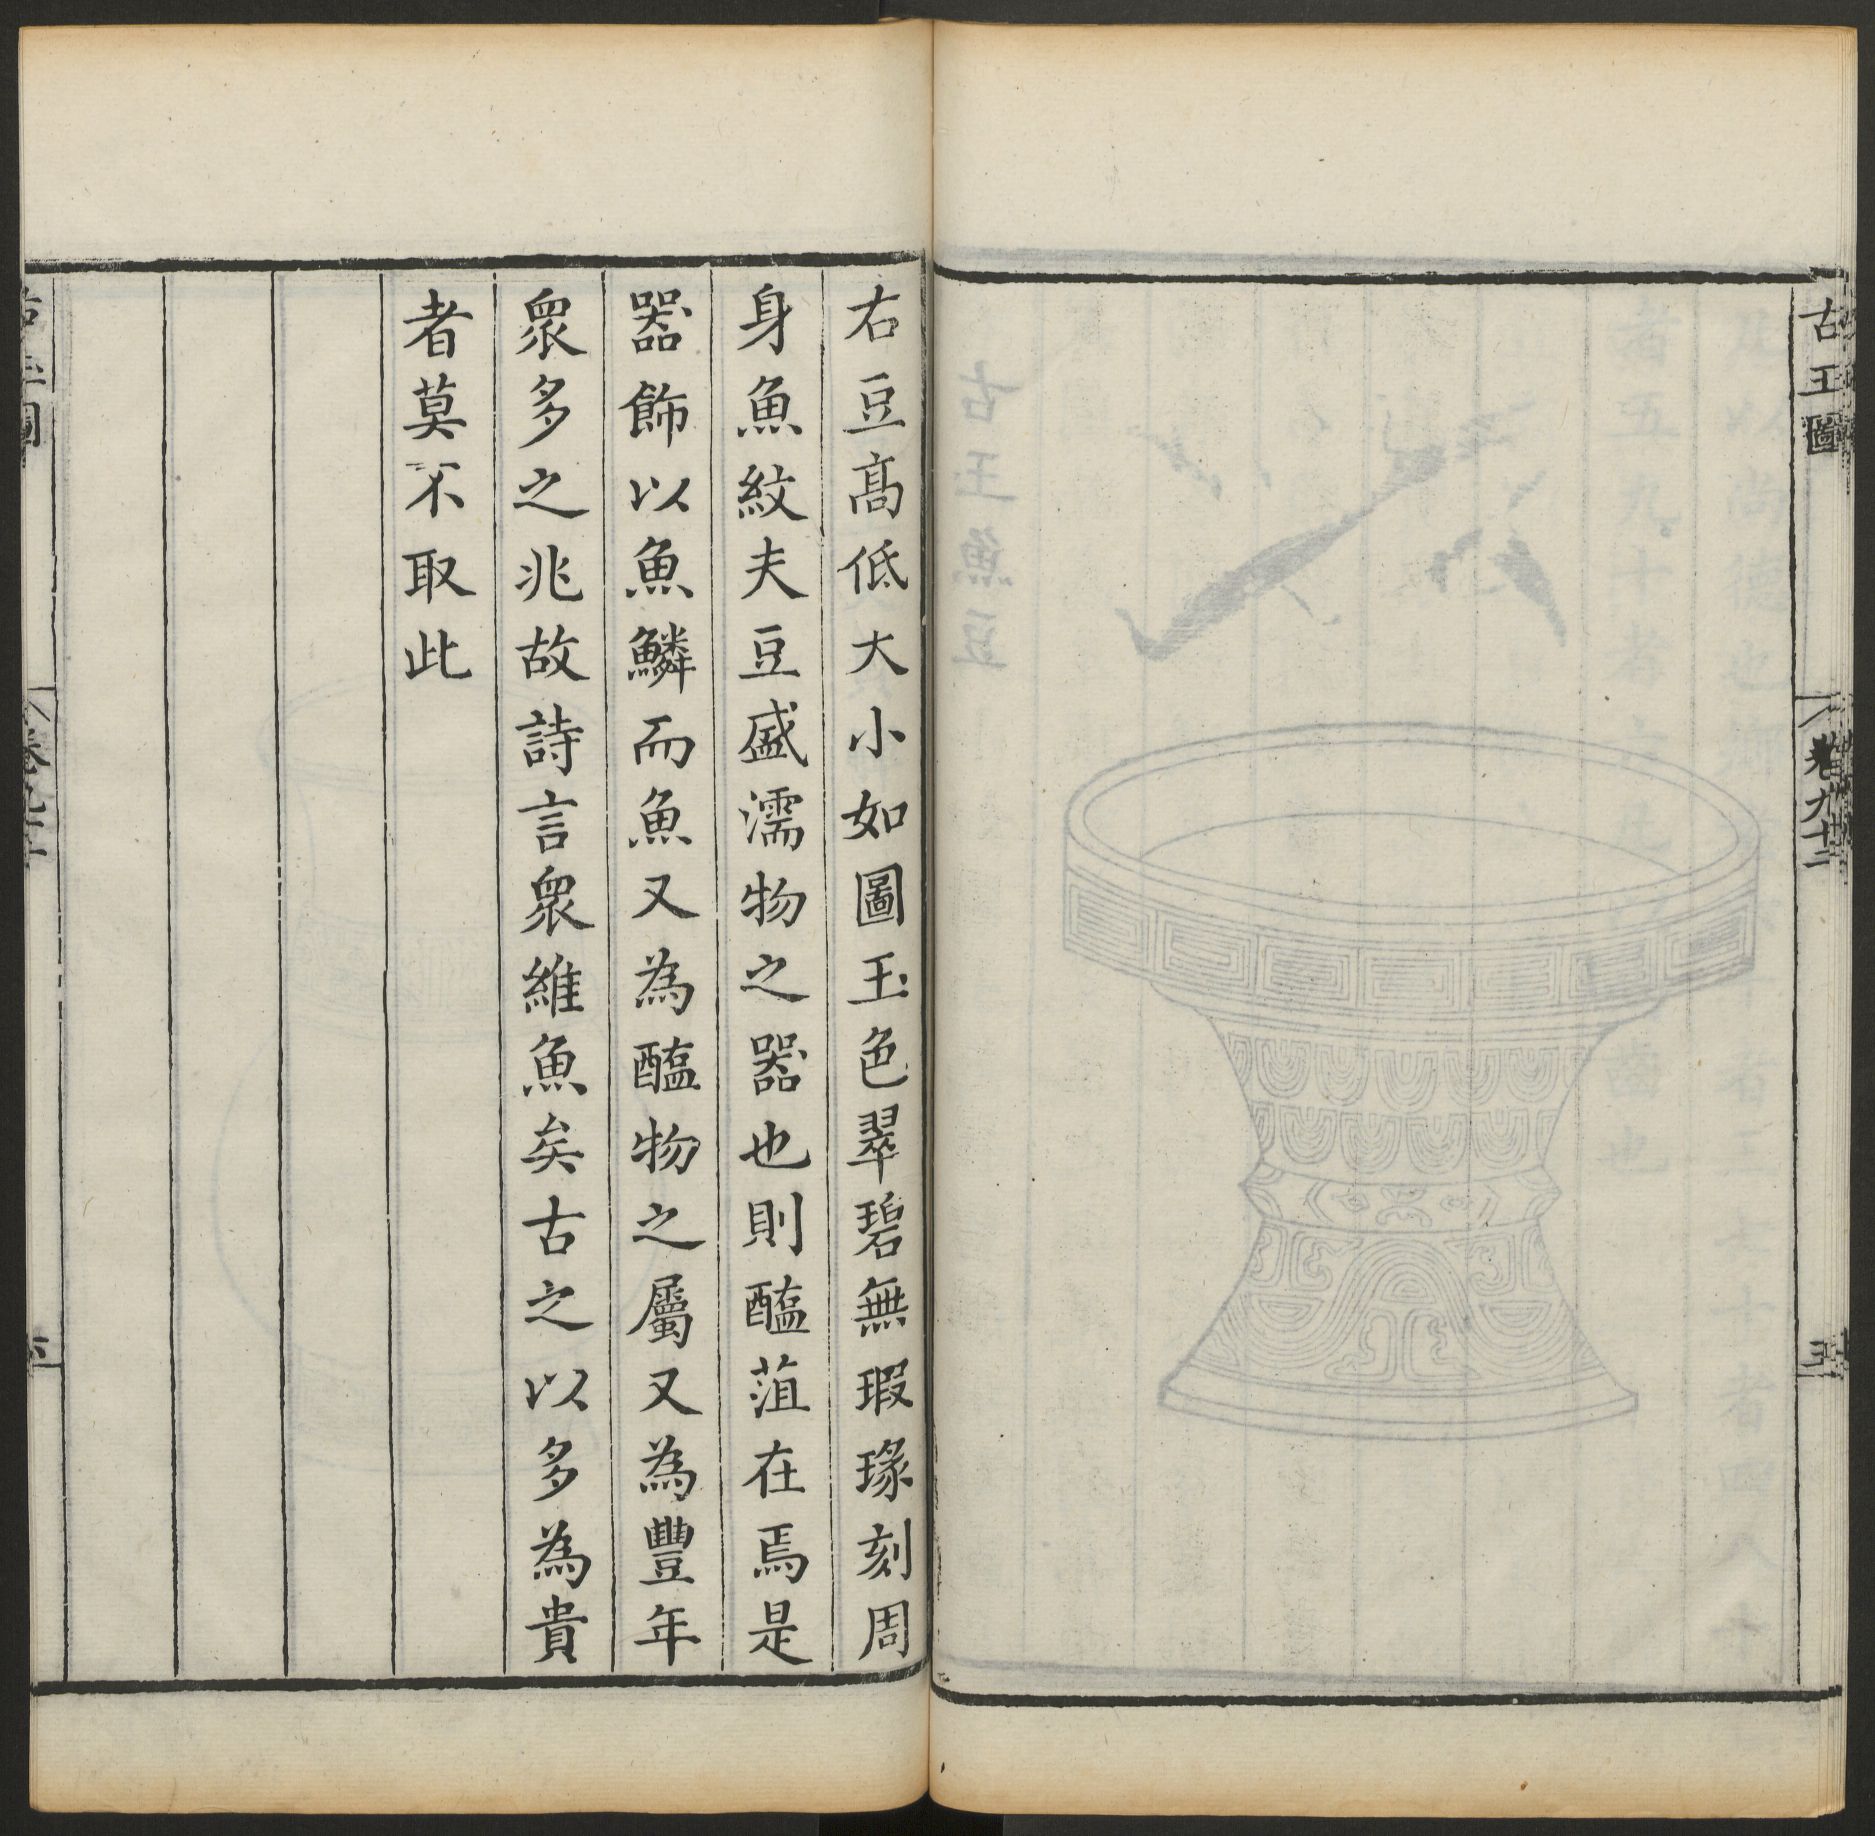 古玉圖
卷九十二
五
右豆高低大小如圖玉色翠碧無瑕瑑刻周
身魚紋夫豆盛濡物之器也則醢菹在焉是
器飾以魚鱗而魚又為醢物之屬又為豐年
衆多之兆故詩言衆維魚矣古之以多為貴
者莫不取此